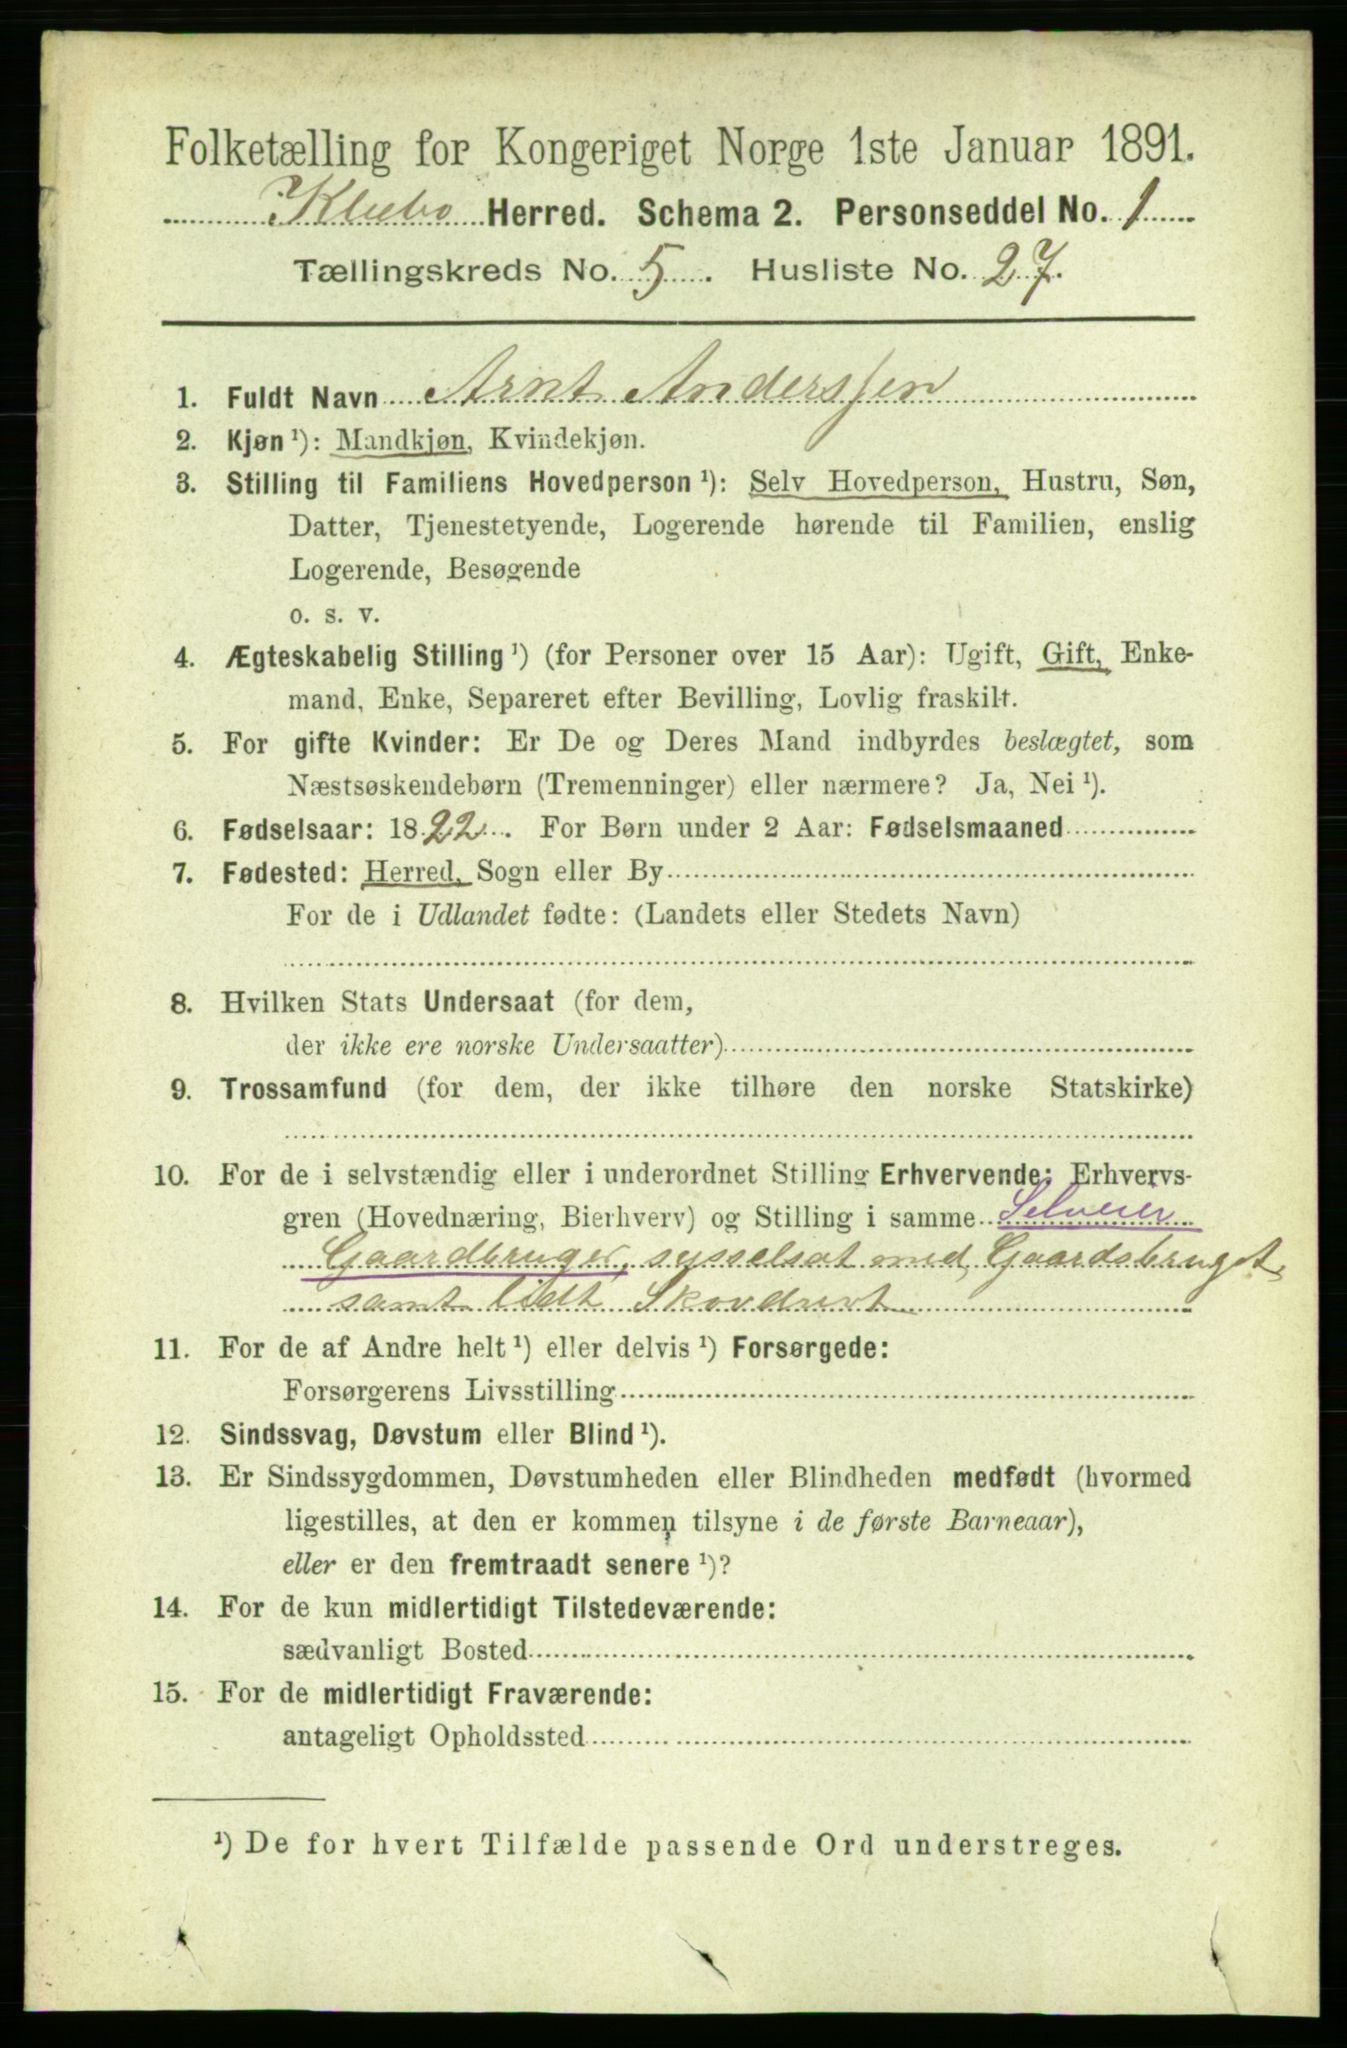 Folketælling for Kongeriget Norge 1ste Januar 1891.
Klæbo Herred. Schema 2. Personseddel No. 1
Tællingskreds No. 5. Husliste No. 27.
1. Fuldt Navn Arnt Anderssen
2. Kjøn ¹): Mandkjøn, Kvindekjøn.
3. Stilling til Familiens Hovedperson ¹): Selv Hovedperson, Hustru, Søn,
Datter, Tjenestetyende, Logerende hørende til Familien, enslig
Logerende, Besøgende
o. s. v.
4. Ægteskabelig Stilling ¹) (for Personer over 15 Aar): Ugift, Gift, Enke-
mand, Enke, Separeret efter Bevilling, Lovlig fraskilt.
5. For gifte Kvinder: Er De og Deres Mand indbyrdes beslægtet, som
Næstsøskendebørn (Tremenninger) eller nærmere? Ja, Nei ¹).
6. Fødselsaar: 1822. For Børn under 2 Aar: Fødselsmaaned
7. Fødested: Herred, Sogn eller By
For de i Udlandet fødte: (Landets eller Stedets Navn)
8. Hvilken Stats Undersaat (for dem,
der ikke ere norske Undersaatter)
9. Trossamfund (for dem, der ikke tilhøre den norske Statskirke)
10. For de i selvstændig eller i underordnet Stilling Erhvervende: Erhvervs-
gren (Hovednæring, Bierhverv) og Stilling i samme Selveier
Gaardbruger, sysselsat med Gaardsbruget,
samt lidt Skovdrivt
11. For de af Andre helt ¹) eller delvis ¹) Forsørgede:
Forsørgerens Livsstilling
12. Sindssvag, Døvstum eller Blind ¹).
13. Er Sindssygdommen, Døvstumheden eller Blindheden medfødt (hvormed
ligestilles, at den er kommen tilsyne i de første Barneaar),
eller er den fremtraadt senere ¹)?
14. For de kun midlertidigt Tilstedeværende:
sædvanligt Bosted
15. For de midlertidigt Fraværende:
antageligt Opholdssted
¹) De for hvert Tilfælde passende Ord understreges.